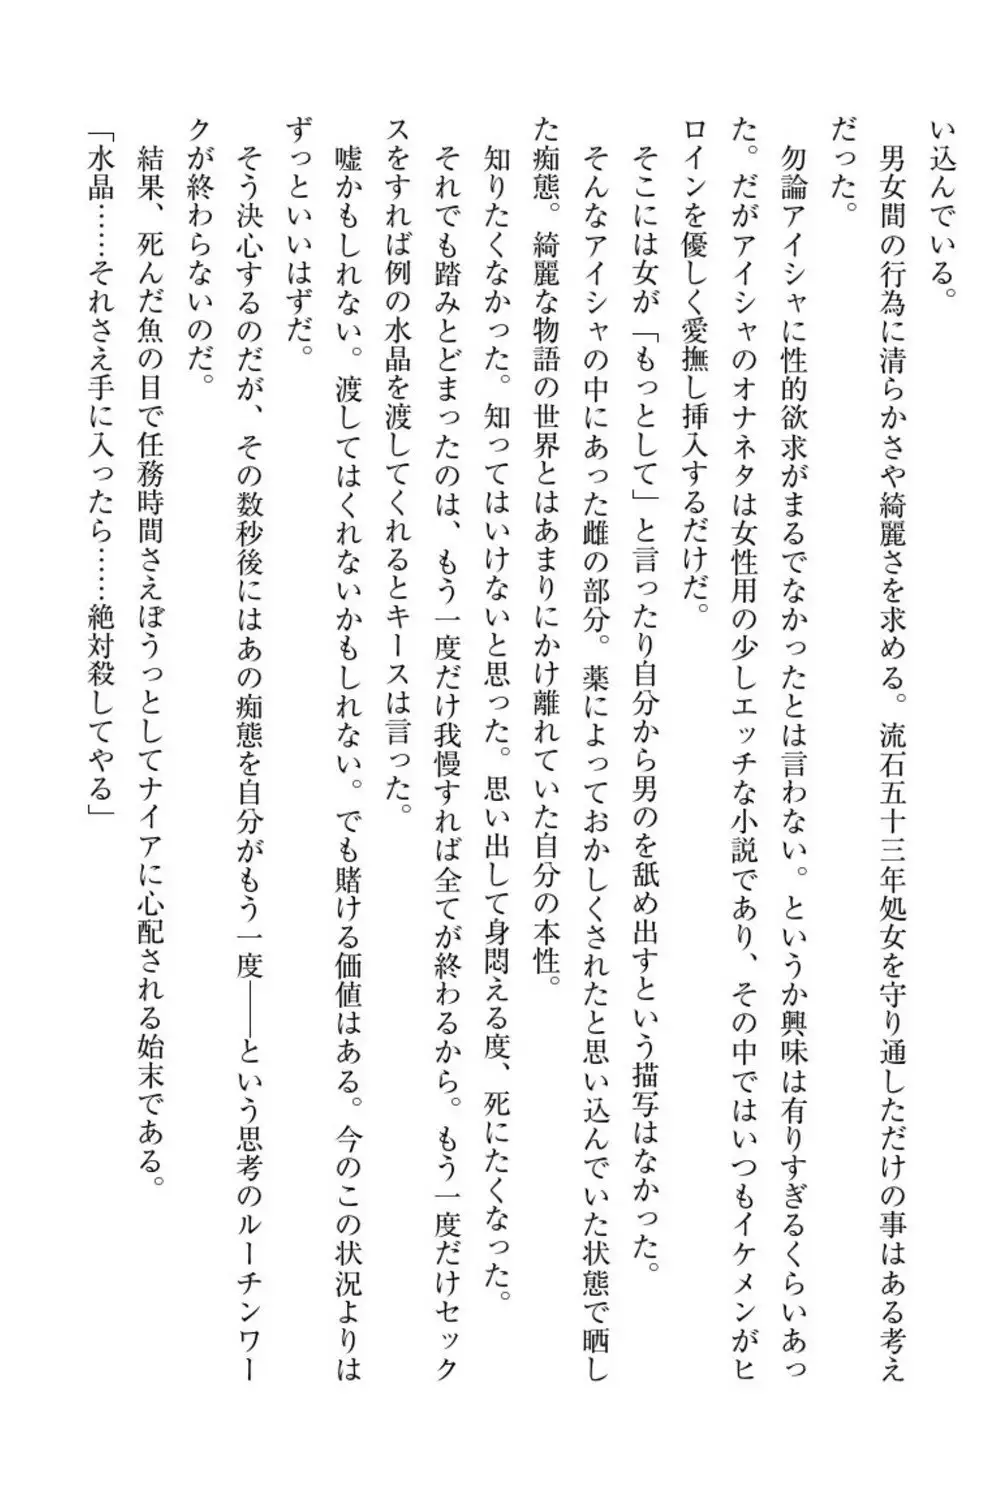 い込んでいる。
　男女間の行為に清らかさや綺麗さを求める。流石五十三年処女を守り通しただけの事はある考え
だった。
　勿論アイシャに性的欲求がまるでなかったとは言わない。というか興味は有りすぎるくらいあっ
た。だがアイシャのオナネタは女性用の少しエッチな小説であり、その中ではいつもイケメンがヒ
ロインを優しく愛撫し挿入するだけだ。
　そこには女が「もっとして」と言ったり自分から男のを舐め出すという描写はなかった。
　そんなアイシャの中にあった雌の部分。薬によっておかしくされたと思い込んでいた状態で晒し
た痴態。綺麗な物語の世界とはあまりにかけ離れていた自分の本性。
　知りたくなかった。知ってはいけないと思った。思い出して身悶える度、死にたくなった。
　それでも踏みとどまったのは、もう一度だけ我慢すれば全てが終わるから。もう一度だけセック
スをすれば例の水晶を渡してくれるとキースは言った。
　嘘かもしれない。渡してはくれないかもしれない。でも賭ける価値はある。今のこの状況よりは
ずっといいはずだ。
　そう決心するのだが、その数秒後にはあの痴態を自分がもう一度――という思考のルーチンワー
クが終わらないのだ。
　結果、死んだ魚の目で任務時間さえぼうっとしてナイアに心配される始末である。
「水晶……それさえ手に入ったら……絶対殺してやる」